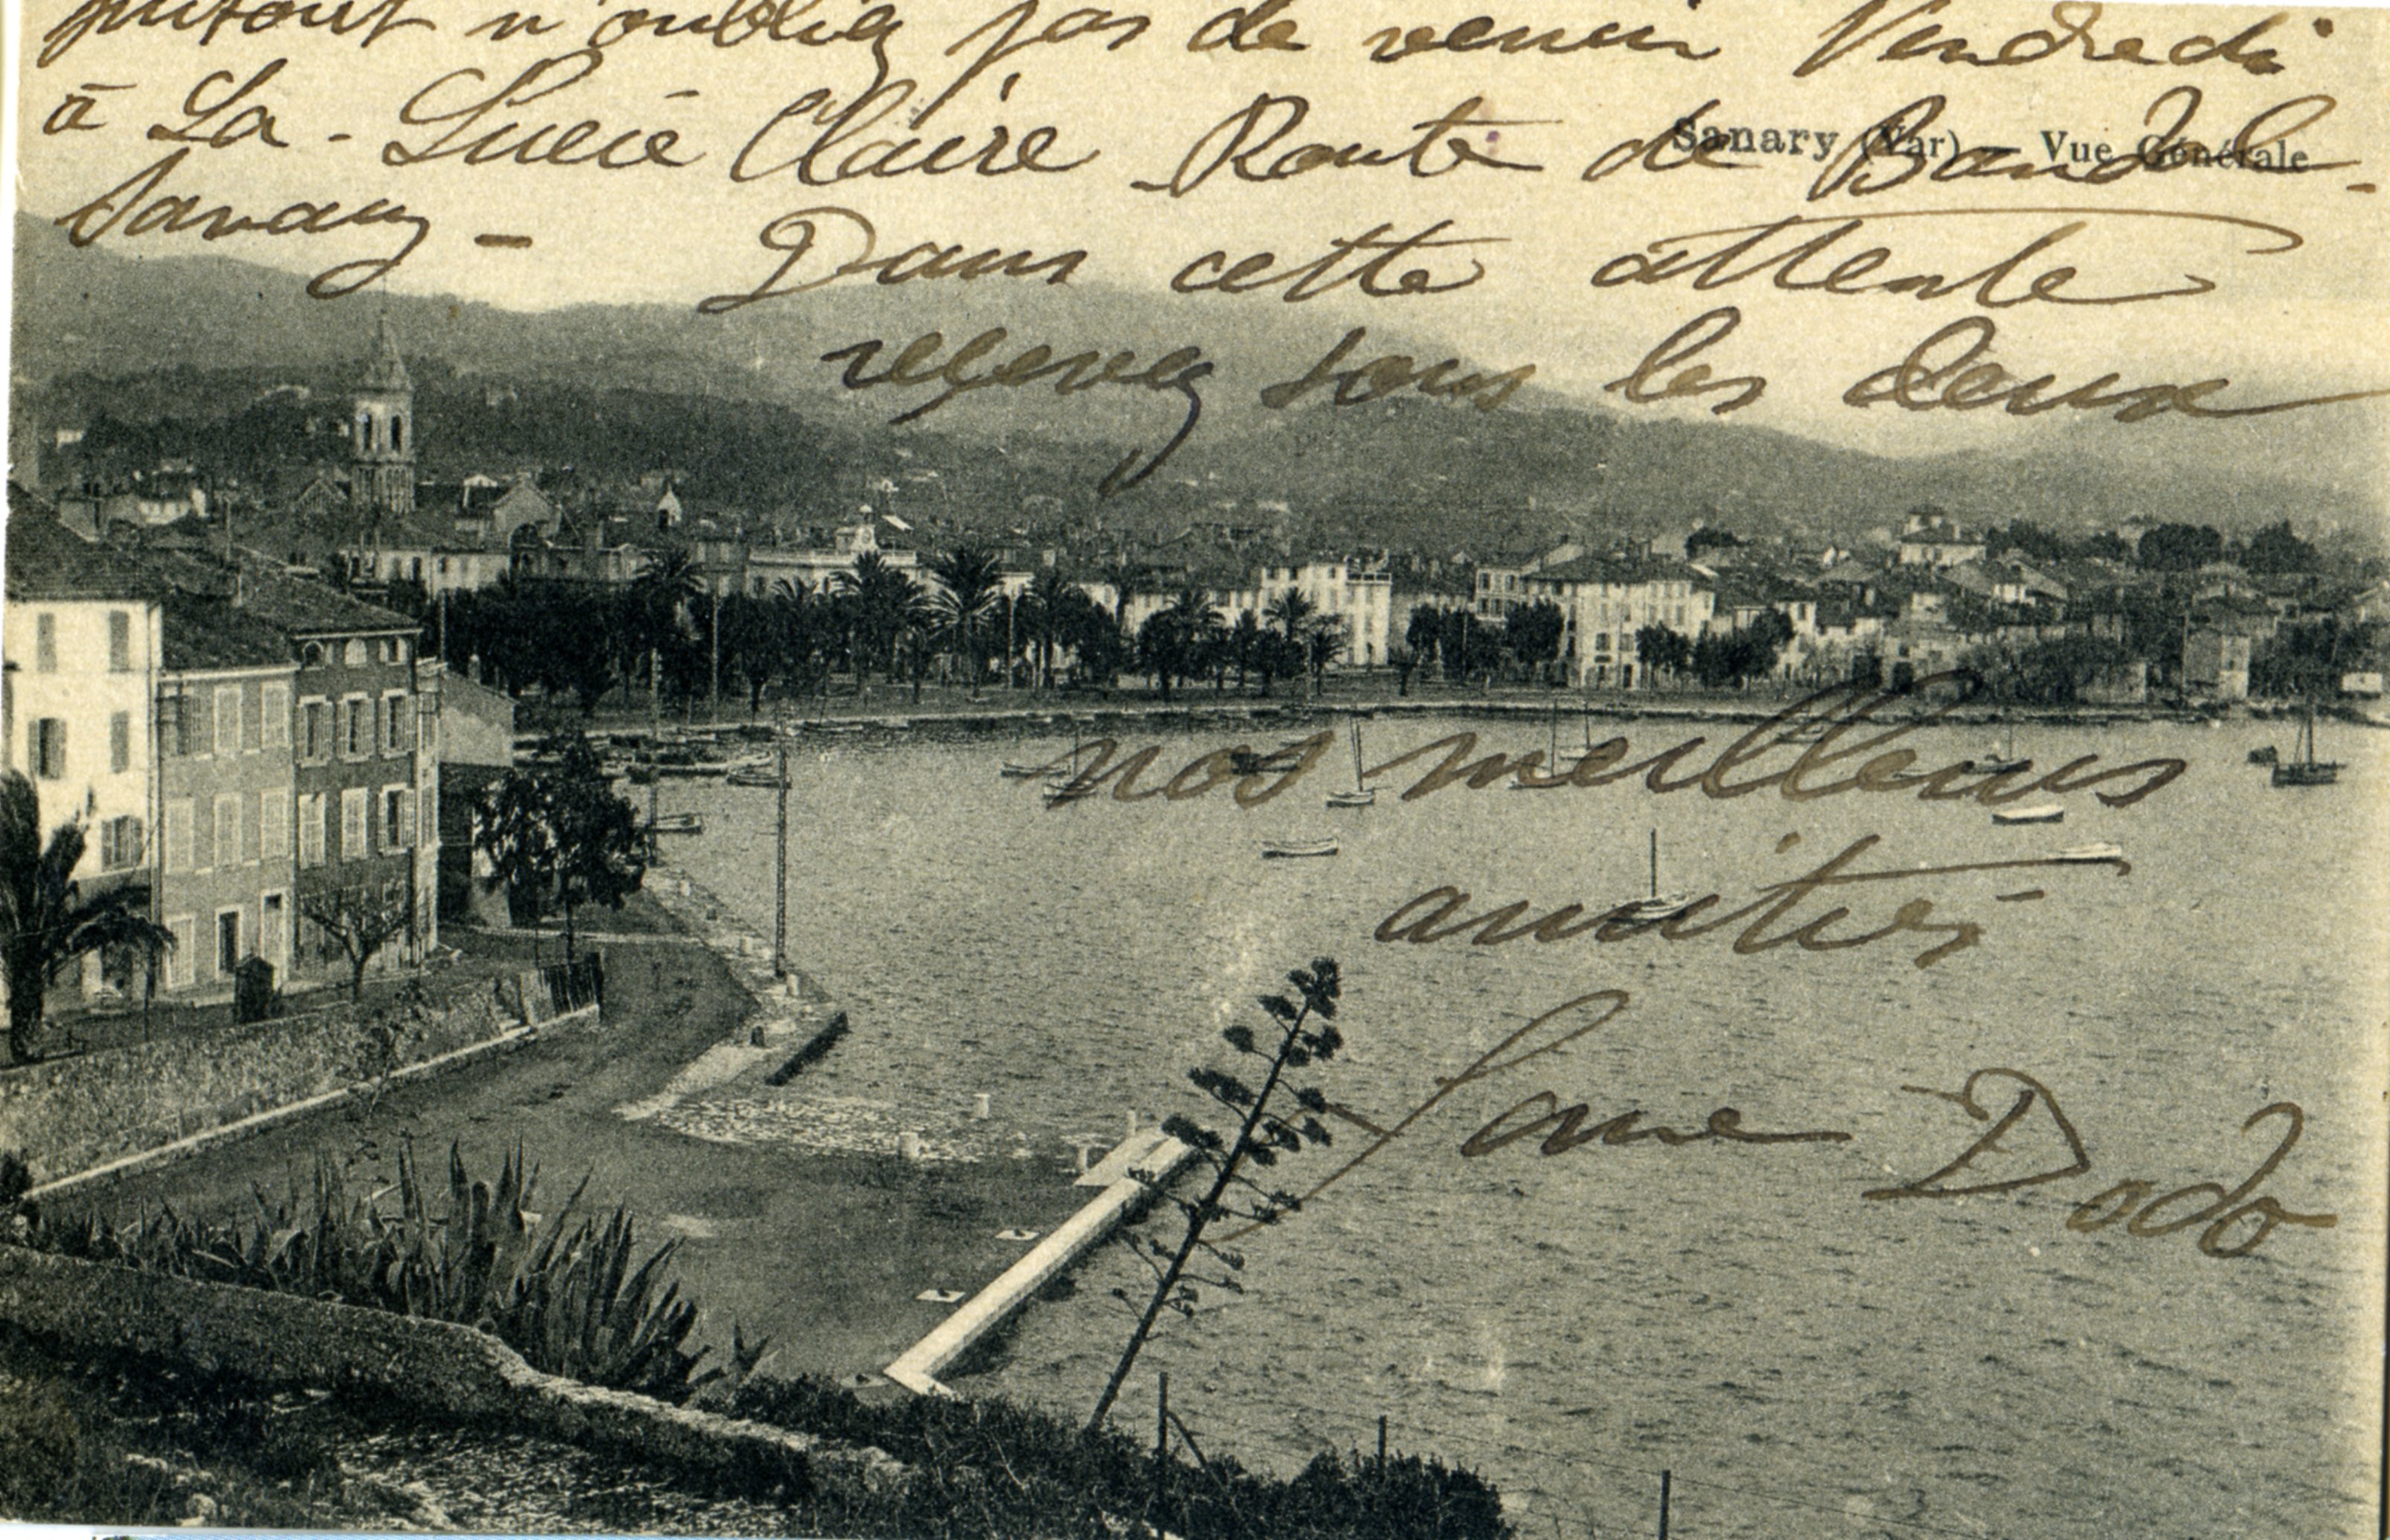 surtout n'oubliez pas de venir Vendredi
à La - Lucie Claire Route de Bandol -
Sanary (Var) — Vue Générale
Sanary - Dans cette attente
recevez tous les deux
nos meilleurs
amitiés
Dodo